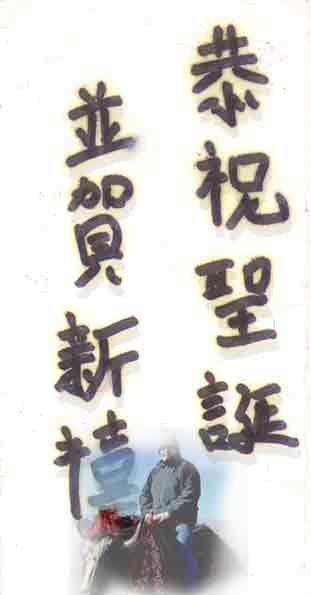 恭祝聖誕
並賀新禧